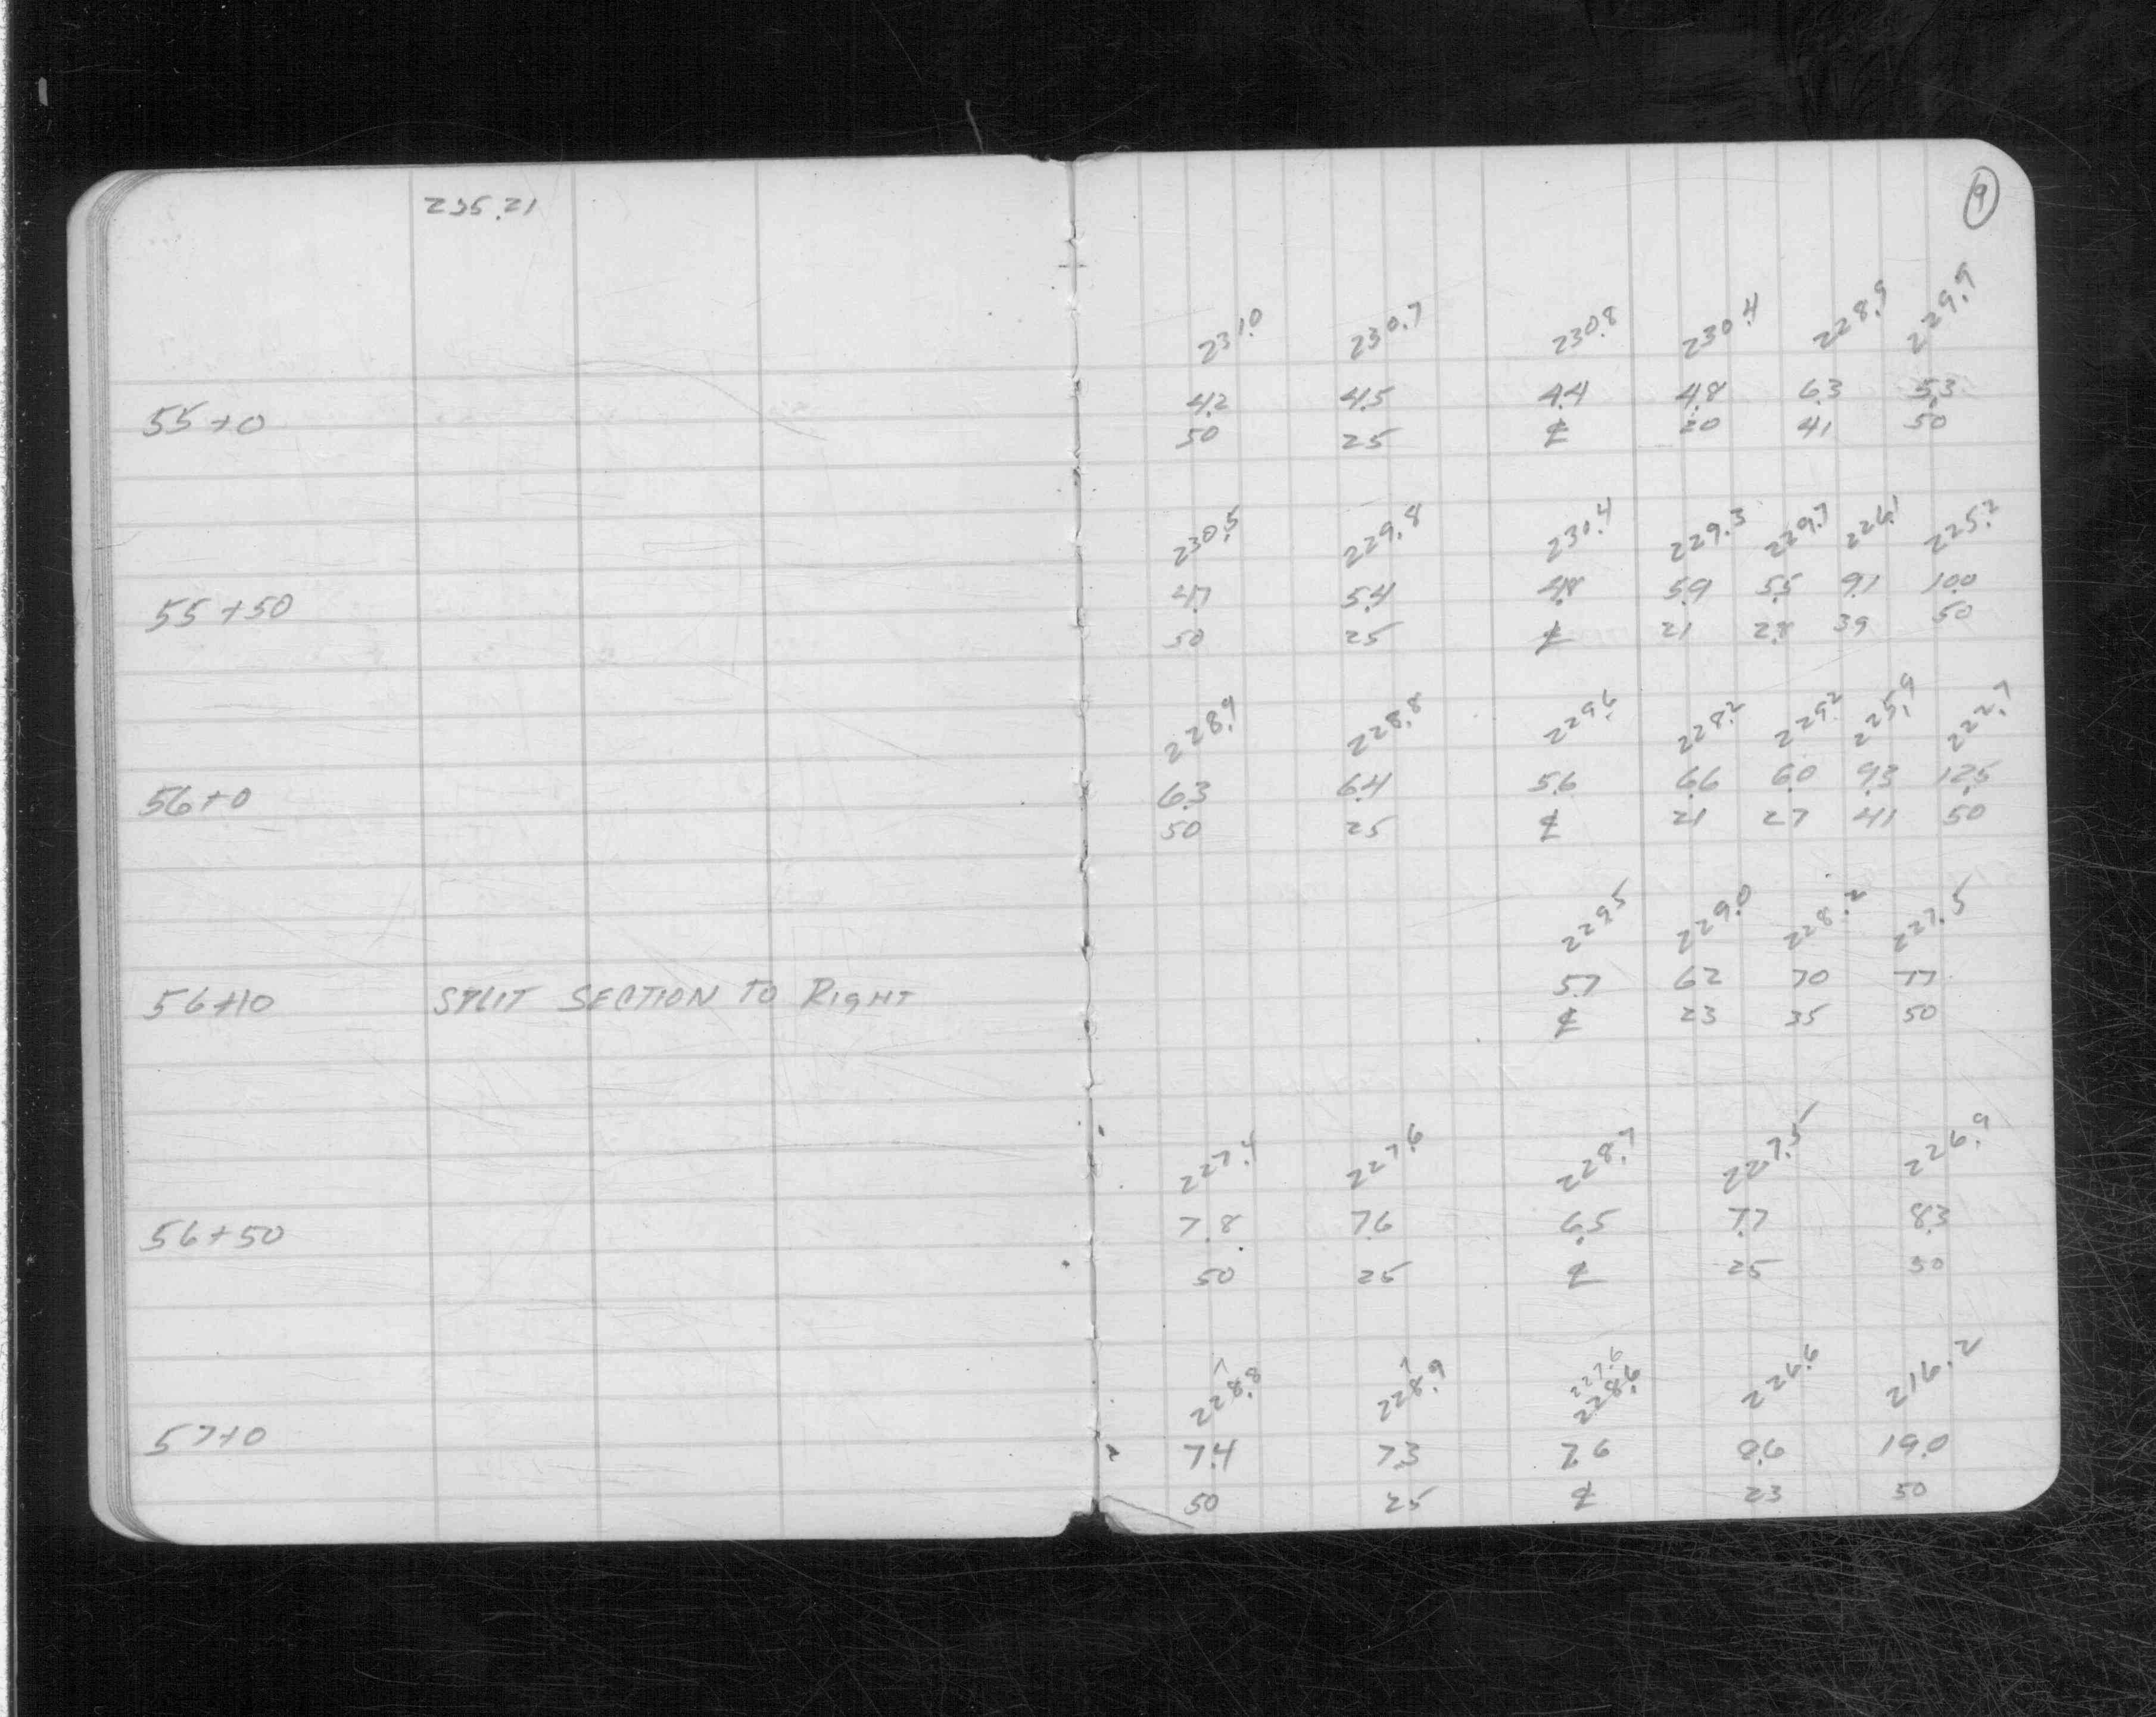 235.21
9
231.0 230.7 230.8 230.4 228.9 229.9
4.2 4.5 4.4 4.8 6.3 5.3
55+0 50 25 ℄ 20 41 50
230.5 229.8 230.4 229.3 229.7 226.1 225.2
4.7 5.4 4.8 5.9 5.5 9.1 10.0
55+50 50 25 ℄ 21 28 39 50
228.9 228.8 229.6 228.2 229.2 225.9 222.7
6.3 6.4 5.6 6.6 6.0 9.3 12.5
56+0 50 25 ℄ 21 27 41 50
229.5 229.0 228.2 227.5
5.7 6.2 7.0 7.7
56+10 SPLIT SECTION TO RIGHT ℄ 23 35 50
227.4 227.6 228.7 227.5 226.9
7.8 7.6 6.5 7.7 8.3
56+50 50 25 ℄ 25 50
7 7 227.6
228.8 228.9 228.6 226.6 216.2
57+0 7.4 7.3 7.6 8.6 19.0
50 25 ℄ 23 50